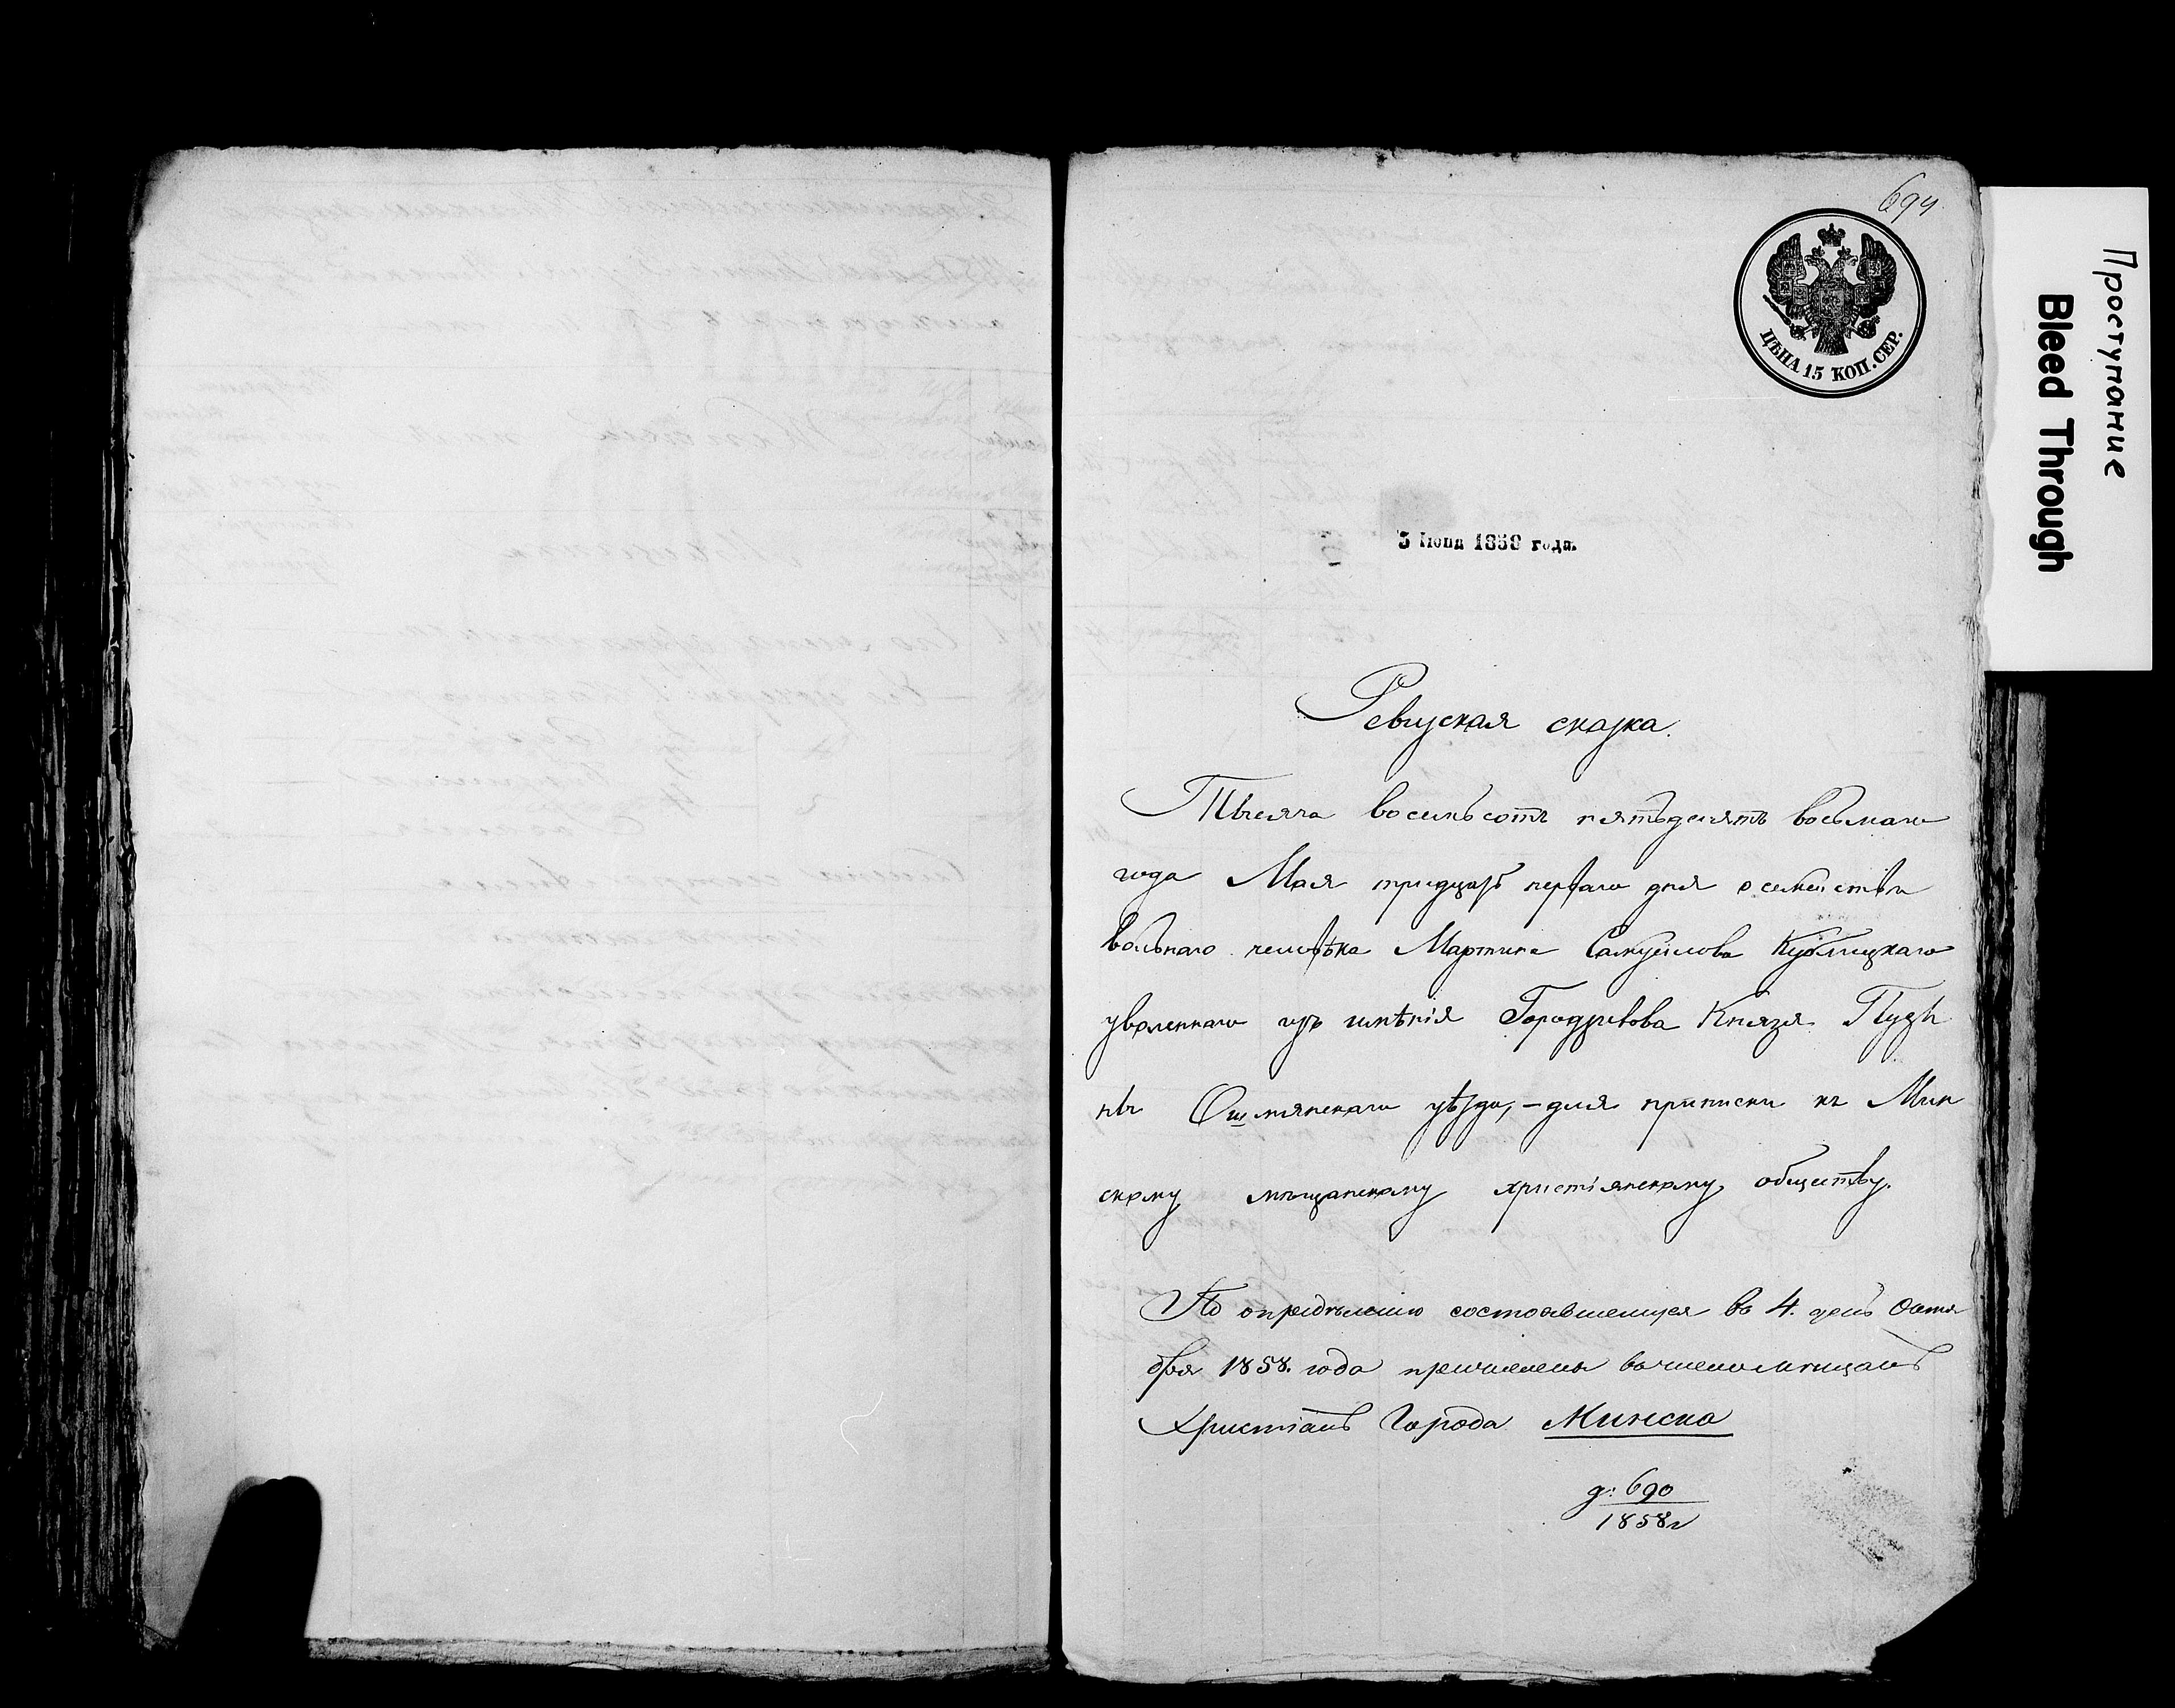 694
ЦѢНА 15 КОП. СЕР.
Проступание
Bleed Through
3 Іюня 1858 года.
Ревизская сказка.
Тысяча восемьсотъ пятьдесятъ восьмаго
года Мая тридцать перваго дня о семействѣ
вольнаго человѣка Мартина Самуилова Кублицкаго
уволеннаго изъ имѣнія Князя Пузы
ны Ошмянскаго уѣзда, – для приписки къ Мин
скому мѣщанскому христіянскому обществу.
По опредѣленію состоявшемуся въ 4. день Октя
бря 1858. года причислены въ число мѣщанъ
Христіанъ Города Минска
д: 690
1858 г